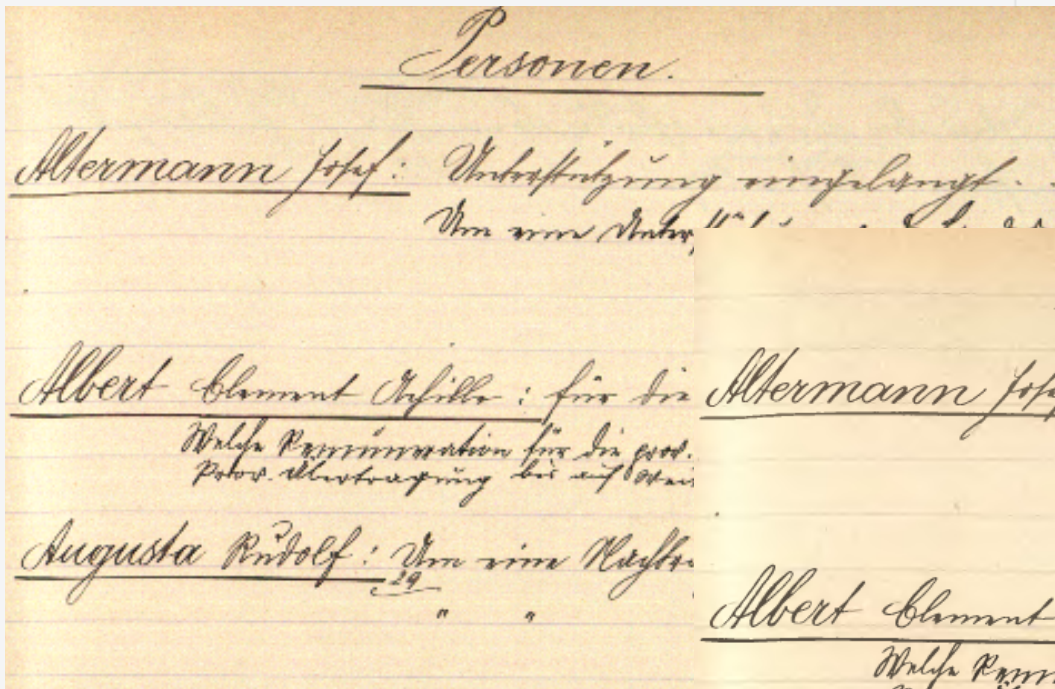 Personen.
Altermann Josef: Unterstützung eingelangt.
Um eine Unter
Albert Clement Achille: für die
Welche Remuneration für die prov.
Prov. Übertragung bis auf Wei
Augusta Rudolf: Um eine Nachtr
29
" "
Altermann Jose
Albert Clement
Welche Remu